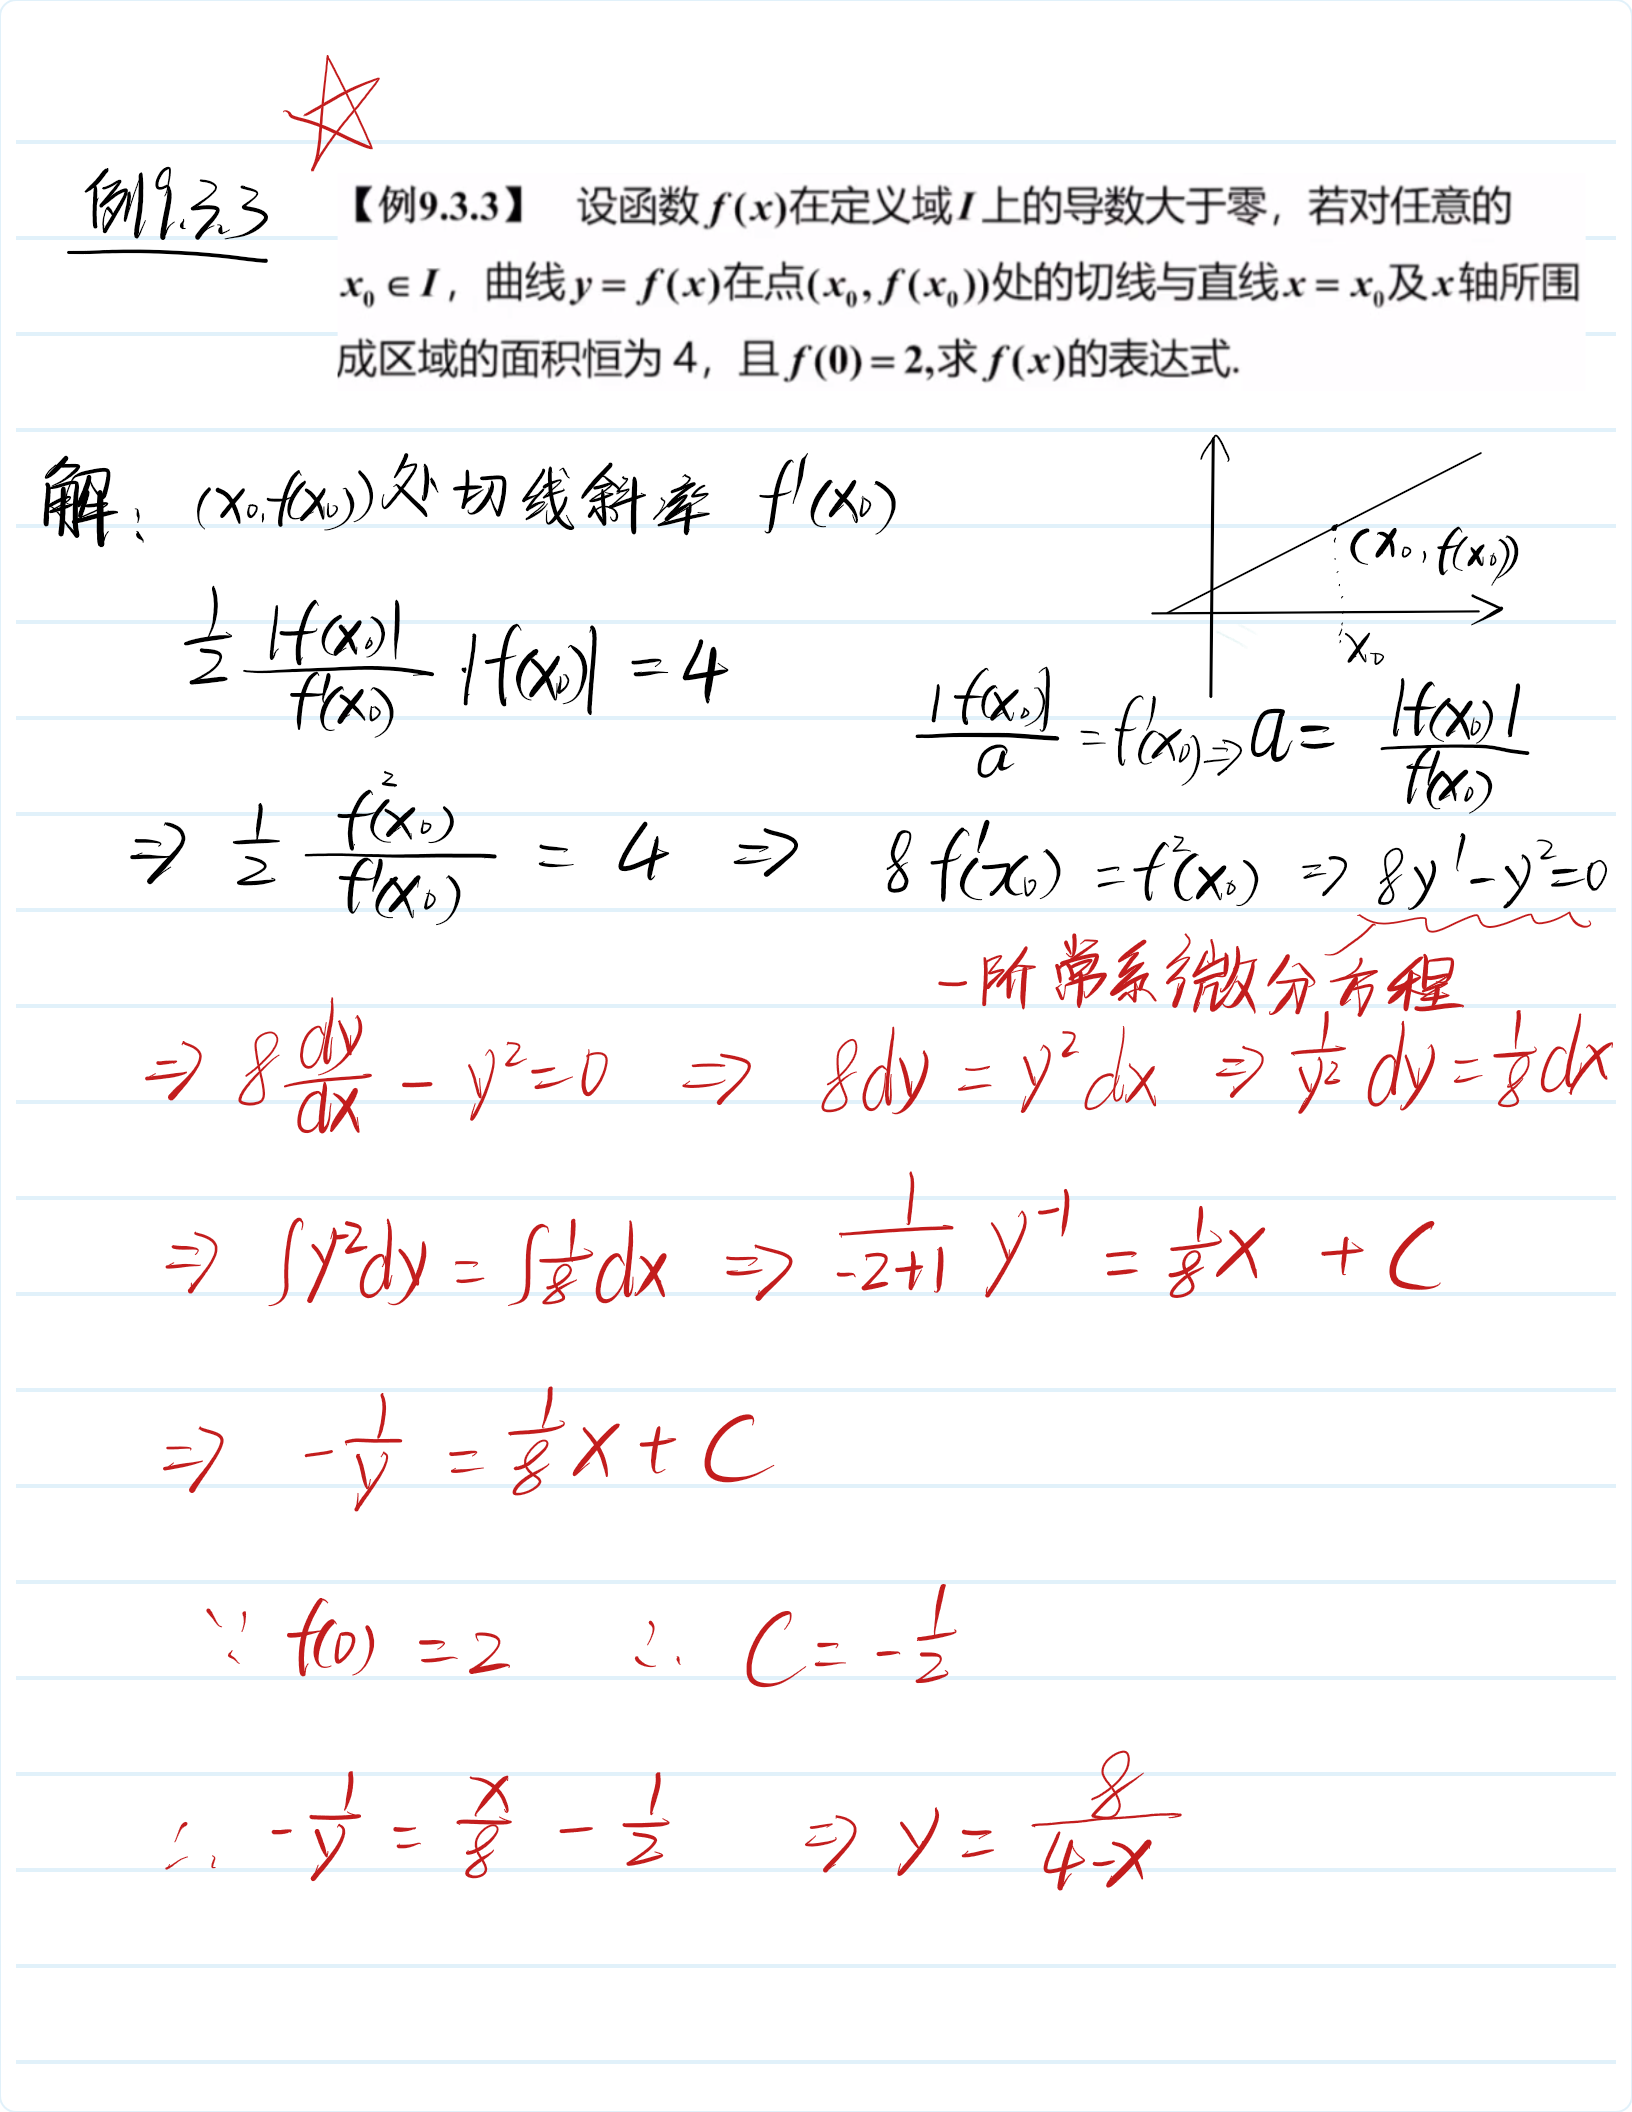 例9.3.3
【例9.3.3】 设函数f(x)在定义域I上的导数大于零，若对任意的
x₀∈I，曲线y=f(x)在点(x₀, f(x₀))处的切线与直线x=x₀及x轴所围
成区域的面积恒为4，且f(0)=2,求f(x)的表达式.
解: (x₀,f(x₀))处切线斜率 f'(x₀)
(x₀, f(x₀))
x₀
1/2 |f(x₀)|/f'(x₀) · |f(x₀)| = 4
|f(x₀)|/a = f'(x₀) ⇒ a = |f(x₀)|/f'(x₀)
⇒ 1/2 f²(x₀)/f'(x₀) = 4 ⇒ 8f'(x₀) = f²(x₀) ⇒ 8y' - y² = 0
一阶常系微分方程
⇒ 8 dy/dx - y² = 0 ⇒ 8dy = y²dx ⇒ 1/y² dy = 1/8 dx
⇒ ∫y⁻²dy = ∫1/8 dx ⇒ 1/(-2+1) y⁻¹ = 1/8 x + C
⇒ -1/y = 1/8 x + C
∵ f(0) = 2 ∴ C = -1/2
∴ -1/y = x/8 - 1/2 ⇒ y = 8/(4-x)